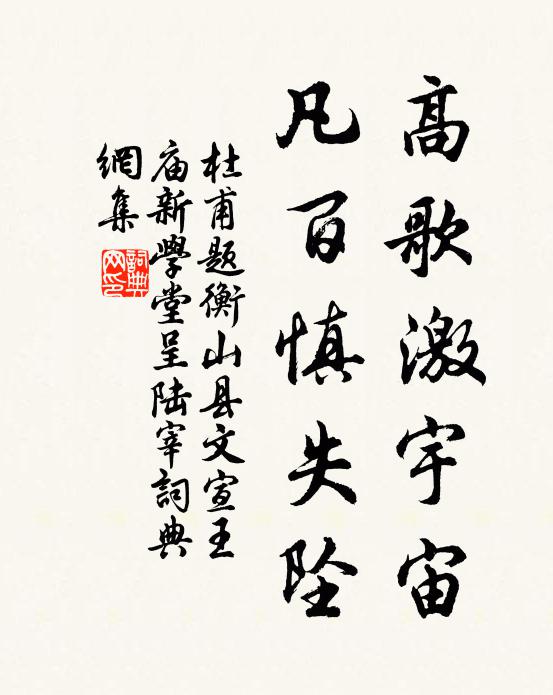 高歌激宇宙
凡百慎失坠
杜甫题衡山县文宣王
庙新學堂呈陆宰詞典
網集
詞典网印